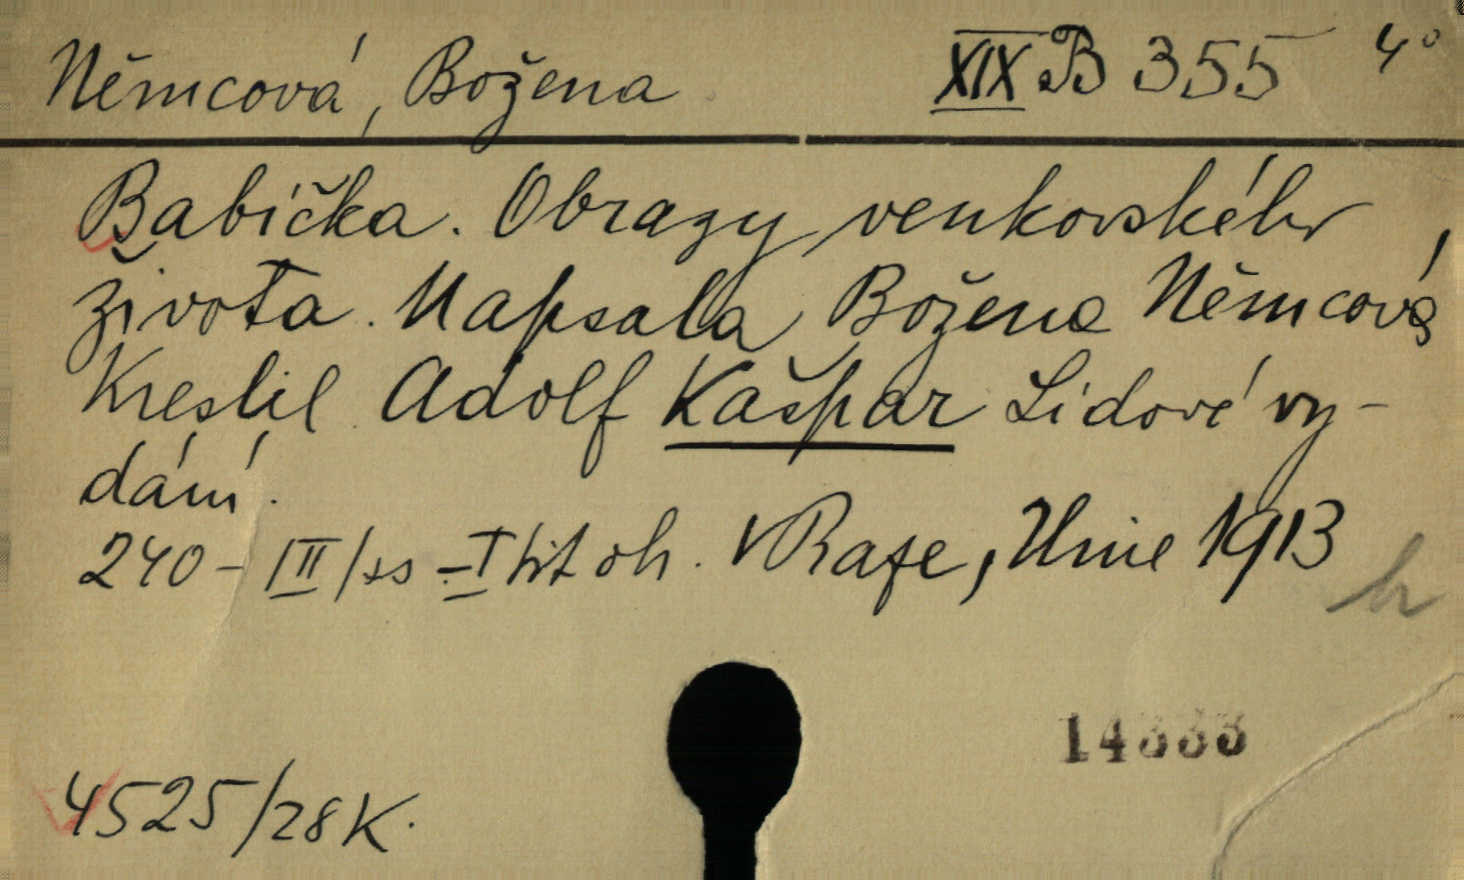 Němcová, Božena XIX B 355 4°
Babička. Obrazy venkovského
života. Napsala Božena Němcová,
Kreslil Adolf Kašpar Lidové vy-
dání.
240-III/ss -I tit ob. V Praze, Unie 1913
14333
4525/28 K.